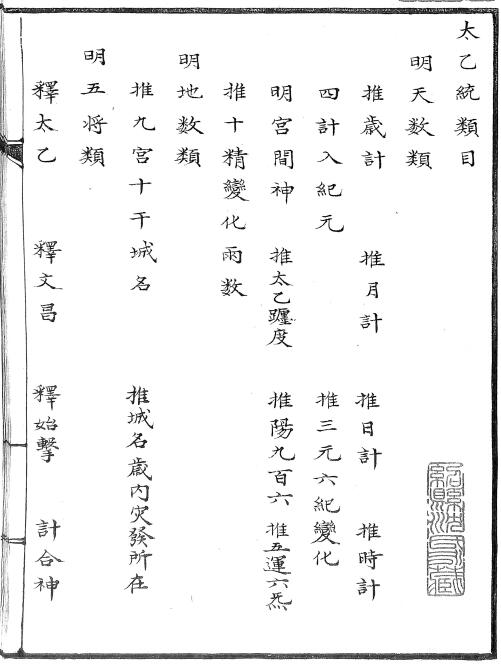 太乙統類目
明天数類
推歲計 推月計 推日計 推時計
四計入紀元 推三元六紀變化
明宮間神 推太乙躔度 推陽九百六 推五運六炁
推十精變化雨数
明地数類
推九宮十干城名 推城名歲内灾發所在
明五将類
釋太乙 釋文昌 釋始擊 計合神